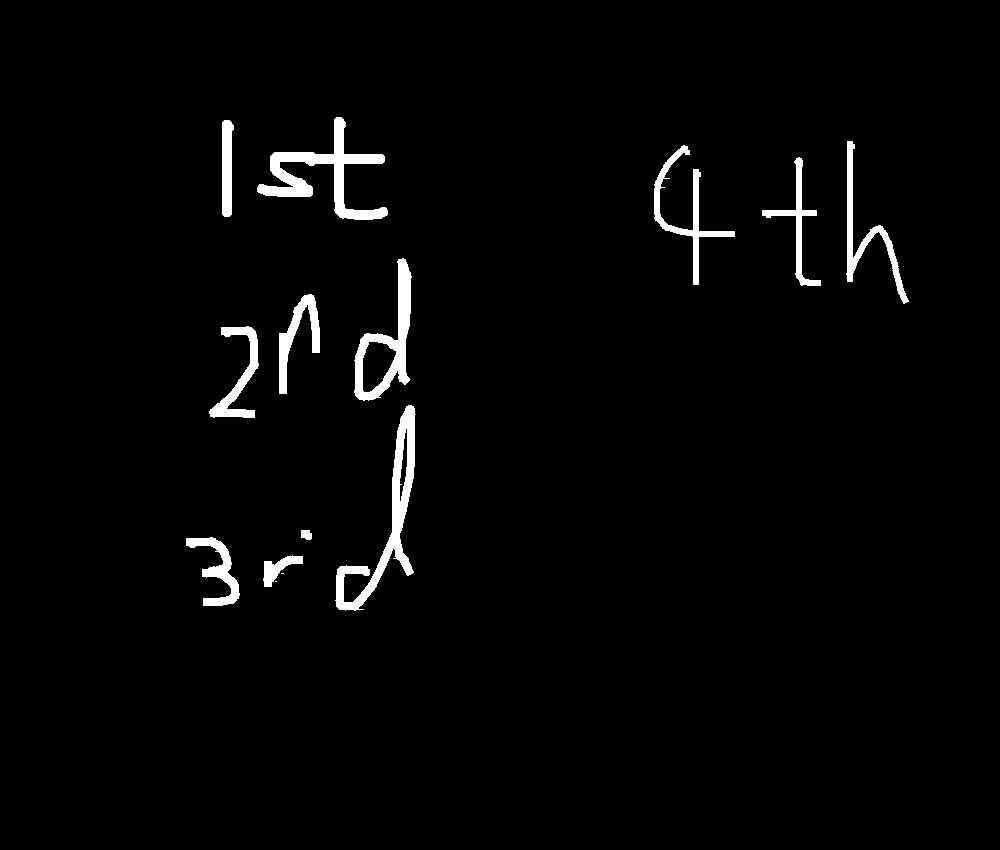 1st
2nd
3rd
4th